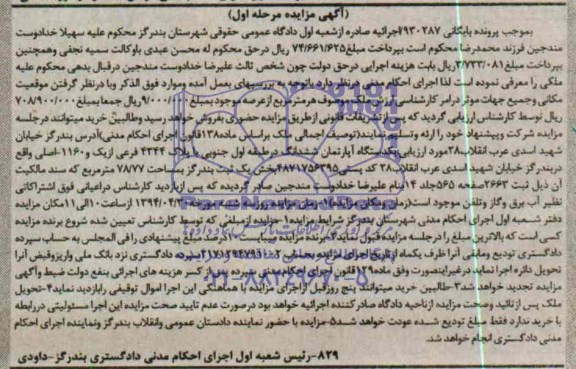 (آگهی مزایده مرحله اول)
بموجب پرونده بایگانی ۹۳۰۲۸۷ اجرائیه صادره ازشعبه اول دادگاه عمومی حقوقی شهرستان بندرگز محکوم علیه سهیلا خدادوست
مندجین فرزند محمدرضا محکوم است بپرداخت مبلغ ۷۴/۶۶۱/۶۲۵ ریال درحق محکوم له محسن عبدی باوکالت سمیه نجفی وهمچنین
پرداخت مبلغ ۳/۷۳۳/۰۸۱ ریال بابت هزینه اجرایی درحق دولت چون شخص ثالث علیرضا خدادوست مندجین درقبال بدهی محکوم علیه
ملکی را معرفی نموده است لذا اجرای احکام مدنی درنظر دارد باتوجه به بررسیهای بعمل آمده وموارد فوق الذکر وبا درنظر گرفتن موقعیت
مکانی وجمیع جهات موثر درامر کارشناسی ارزش ملک موصوف هرمترمربع ازعرصه موجود بمبلغ ۹/۰۰۰/۰۰۰ ریال جمعا بمبلغ ۷۰۸/۹۰۰/۰۰۰
ریال توسط کارشناس ارزیابی گردید که پس از تشریفات قانونی ازطریق مزایده حضوری بفروش خواهد رسید وطالبین خرید میتوانند درجلسه
مزایده شرکت وپیشنهاد خود را ارئه وتسلیم نمایند(توصیف اجمالی ملک براساس ماده۱۳۸قانون اجرای احکام مدنی)آدرس بندرگز خیابان
شهید اسدی عرب انقلاب۲۸مورد ارزیابی یکدستگاه آپارتمان ششدانگ درطبقه اول جنوبی با پلاک ۴۳۴۴ فرعی ازیک و۱۱۶۰-اصلی واقع
دربندرگز خیابان شهید اسدی عرب انقلاب۲۸ کد پستی۴۸۷۱۷۵۶۳۹۵بخش یک ثبت بندرگز بمساحت ۷۸/۷۷ مترمربع که سند مالکیت
آن ذیل ثبت ۲۶۶۳ صفحه ۵۶۵جلد ۱۴بنام علیرضا خدادوست مندجین صادر گردیده که پس ازبازدید کارشناس دراعیانی فوق اشتراکاتی
نظیر آب برق وگاز وتلفن موجود است(زمان ومکان مزایده)۱-زمان مزایده روز ۱۳۹۴/۰۴/۲ ازساعت۱۰الی۱۱مکان مزایده
دفتر شعبه اول اجرای احکام مدنی شهرستان بندرگز شرایط مزایده۱-مزایده ازمبلغی که توسط کارشناس تعیین شده شروع برنده مزایده
کسی است که بالاترین مبلغ را درجلسه مزایده قبول نماید۲-برنده مزایده میبایست۱۰درصد مبلغ پیشنهادی رافی المجلس به حساب سپرده
دادگستری تودیع ومابقی آنرا ظرف یکماه ازتاریخ اجرای مزایده بحساب سپرده دادگستری نزد بانک ملی واریزوقبض آنرا
تحویل دائره اجرا نماید درغیراینصورت وفق ماده۱۲۹قانون اجرای احکام مدنی سپرده پس از کسر هزینه های اجرائی بنفع دولت ضبط وآگهی
مزایده تجدید خواهد شد۳-طالبین خرید میتوانند پنج روزقبل ازاجرای مزایده با هماهنگی این اجرا اموال توقیفی رابازدید نماید۴-تحویل
ملک پس ازتائید وصحت مزایده ازناحیه دادگاه صادرکننده اجرائیه خواهد بود درصورت عدم تایید صحت مزایده این اجرا مسئولیتی دررابطه
با خرید ندارد فقط مبلغ تودیع شده عودت خواهد شد۵-مزایده با حضور نماینده دادستان عمومی وانقلاب بندرگز ونماینده اجرای احکام
مدنی دادگستری انجام خواهد شد.
۸۲۹-رئیس شعبه اول اجرای احکام مدنی دادگستری بندرگز-داودی